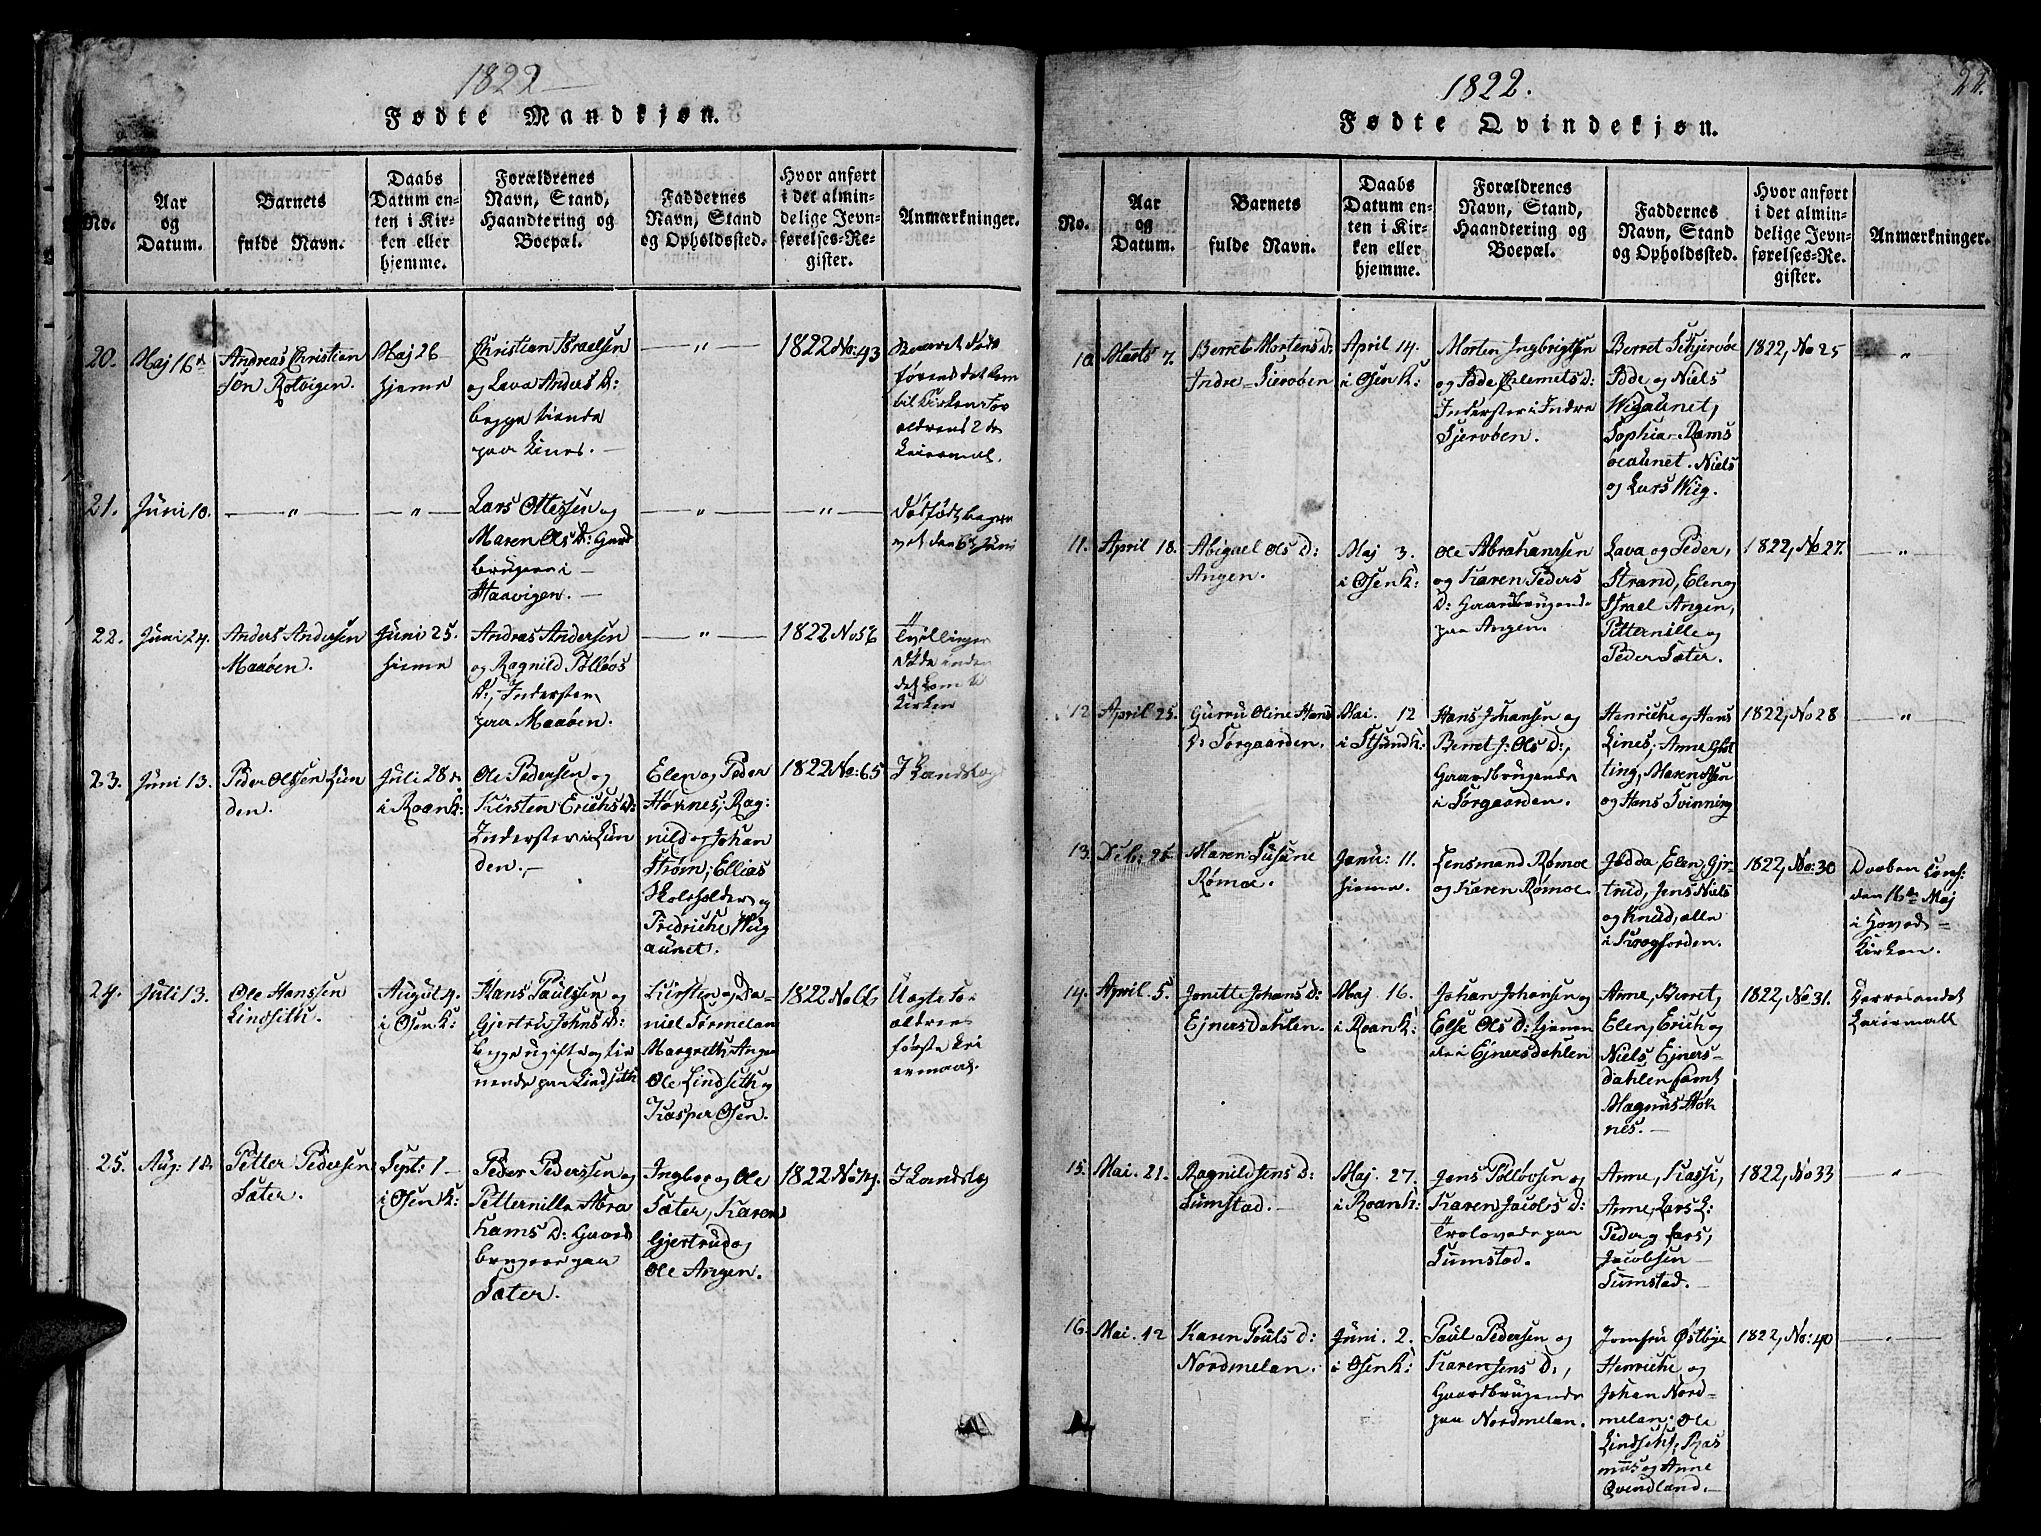 1822
Fødte Mandkjøn.
No.
Aar
og
Datum.
Barnets
fulde Navn.
Daabs
Datum en-
ten i Kir-
ken eller
hjemme.
Forældrenes
Navn, Stand,
Haandtering og
Boepæl.
Faddernes
Navn, Stand
og Opholdssted.
Hvor anført
i det almin-
delige Jevn-
førelses-Re-
gister.
Anmærkninger.
20.
Maj 16de
Andreas Christian
sen Rotvigen.
Maj 26
hjeme
Christian Israelsen
og Lava Anders D:
begge tienende
paa Lines.
— " —
1822 No: 43
førend det kom
til Kirken. For
ældrenes 2de
Leiermaal.
21.
Juni 10.
— " —
— " —
Lars Ottessen og
Maren Ols D: Gaard
brugere i
Haavigen.
— " —
— " —
Dødfødt, begra
vet den 6te Juni
22.
Juni 24.
Anders Andersen
Maaøen.
Juni 25.
hieme
Andras Andersen
og Ragnild Tølløvs
D:, Indersten
paa Maaøen.
— " —
1822 No 56
Tvillinger
Døde inden
det kom til
Kirken
23.
Juni 13.
Peder Olssen Lun
den.
Juli 28de
i Roan K:
Ole Pedersen og
Kirsten Erichs D:
Inderster i Lun
den.
Elen og Peder
Høvnes; Rag:
nild og Johan
Strøm; Ellias
Skoleholder og
Fredriche Wiig
aunet.
1822 No: 65
I Landsbog
24.
Juli 13.
Ole Hanssen
Lindseth.
August 4.
i Osen K:
Hans Paulssen og
Gjertru Johns D:
begge ugifte og tie
nende paa Lindseth
Kirsten og Da-
niel Sørmelan
Margreth Angen
Ole Lindseth og
Kasper Osen.
1822 No 66
Uægte For
ældrenes
første Lei
ermaal.
25.
Aug: 18.
Petter Pedersen
Sæter.
Sept: 1.
i Osen K:
Peder Pederssen og
Petternilla Abra
hams D: Gaard
brugere paa
Sæter.
Ingbor og Ole
Sæter, Karen
Gjertrud og
Ole Angen.
1822 No 74.
I Landsbog
1822.
22.
Fødte Qvindekjøn.
No.
Aar
og
Datum.
Barnets
fulde Navn.
Daabs
Datum en-
ten i Kir-
ken eller
hjemme.
Forældrenes
Navn, Stand,
Haandtering og
Boepæl.
Faddernes
Navn, Stand
og Opholdssted.
Hvor anført
i det almin-
delige Jevn-
førelses-Re-
gister.
Anmærkninger.
10.
Marts 7.
Berret Mortens D:
Indre-Sierøben
April 14.
i Osen K:
Morten Ingbrigtsen
og Clemets D:
Inderster i Indre
Sjerøben.
Berret Schjervøe
og Niels
Wigaunet,
Sophia Rams
øeaunet. Niels
og Lars Wiig.
1822, No 25
"
11.
April 18.
Abigael Ols D:
Angen.
Maj 3.
i Osen K:
Ole Abrahamsen
og Karen Peders
D: Gaardbrugende
paa Angen.
Lava og Peder,
Strand, Elen og
Israel Angen,
Petternille og
Peder Sæter.
1822, No 27.
— " —
12
April 25.
Gurru Oline Hans
D: Sørgaarden.
Mai. 12
i Stsund K:
Hans Johansen og
Berret J: Ols D:,
Gaardbrugende
i Sørgaarden.
Henriche og Hans
Lines, Anne
ting, Maren
og Hans Svinning
1822, No 28
— " —
13.
Maren Susune
Rømoe.
Janu: 11.
hieme.
Lensmand Rømoe
og Karen Rømoe
Jædda, Elen, Gjer-
trud, Jens Niels
og Knud, alle
i Kragfjorden.
1822, No: 30
Daaben Conf:
den 16de Maj
i Hoved-
Kirken.
14.
April 5.
Jonette Johans D:
Ejnersdahlen.
Maj. 16.
i Roan K:
Johan Johansen og
Else Ols D: tjenen
de i Ejnersdahlen
Anne, Berret,
Elen, Erich og
Niels Ejners-
dahlen samt
Magnus Høv
nes.
1822, No. 31.
Leiermall
15.
Mai. 21.
Ragnild Jens D:
Sumstad.
Maj. 27.
i Roan K:
Jens Tølløvsen og
Karen Jacobs D:
Trolovede paa
Sumstad.
Anne, Kassi,
Anne, Lars L:
Peder og Lars,
Jacobsen
Sumstad.
1822, No 33
"
16.
Mai. 12
Karen Pouls D:
Nordmelan.
Juni. 2.
i Osen K:
Paul Pedersen og
Karen Jens D:,
Gaardbrugende
paa Nordmelan.
Jomfru Østbye
Henriche og
Johan Nord-
melan; Ole
Lindseth, Ras
mus og Anne
Qvindland.
1822, No: 40
— " —